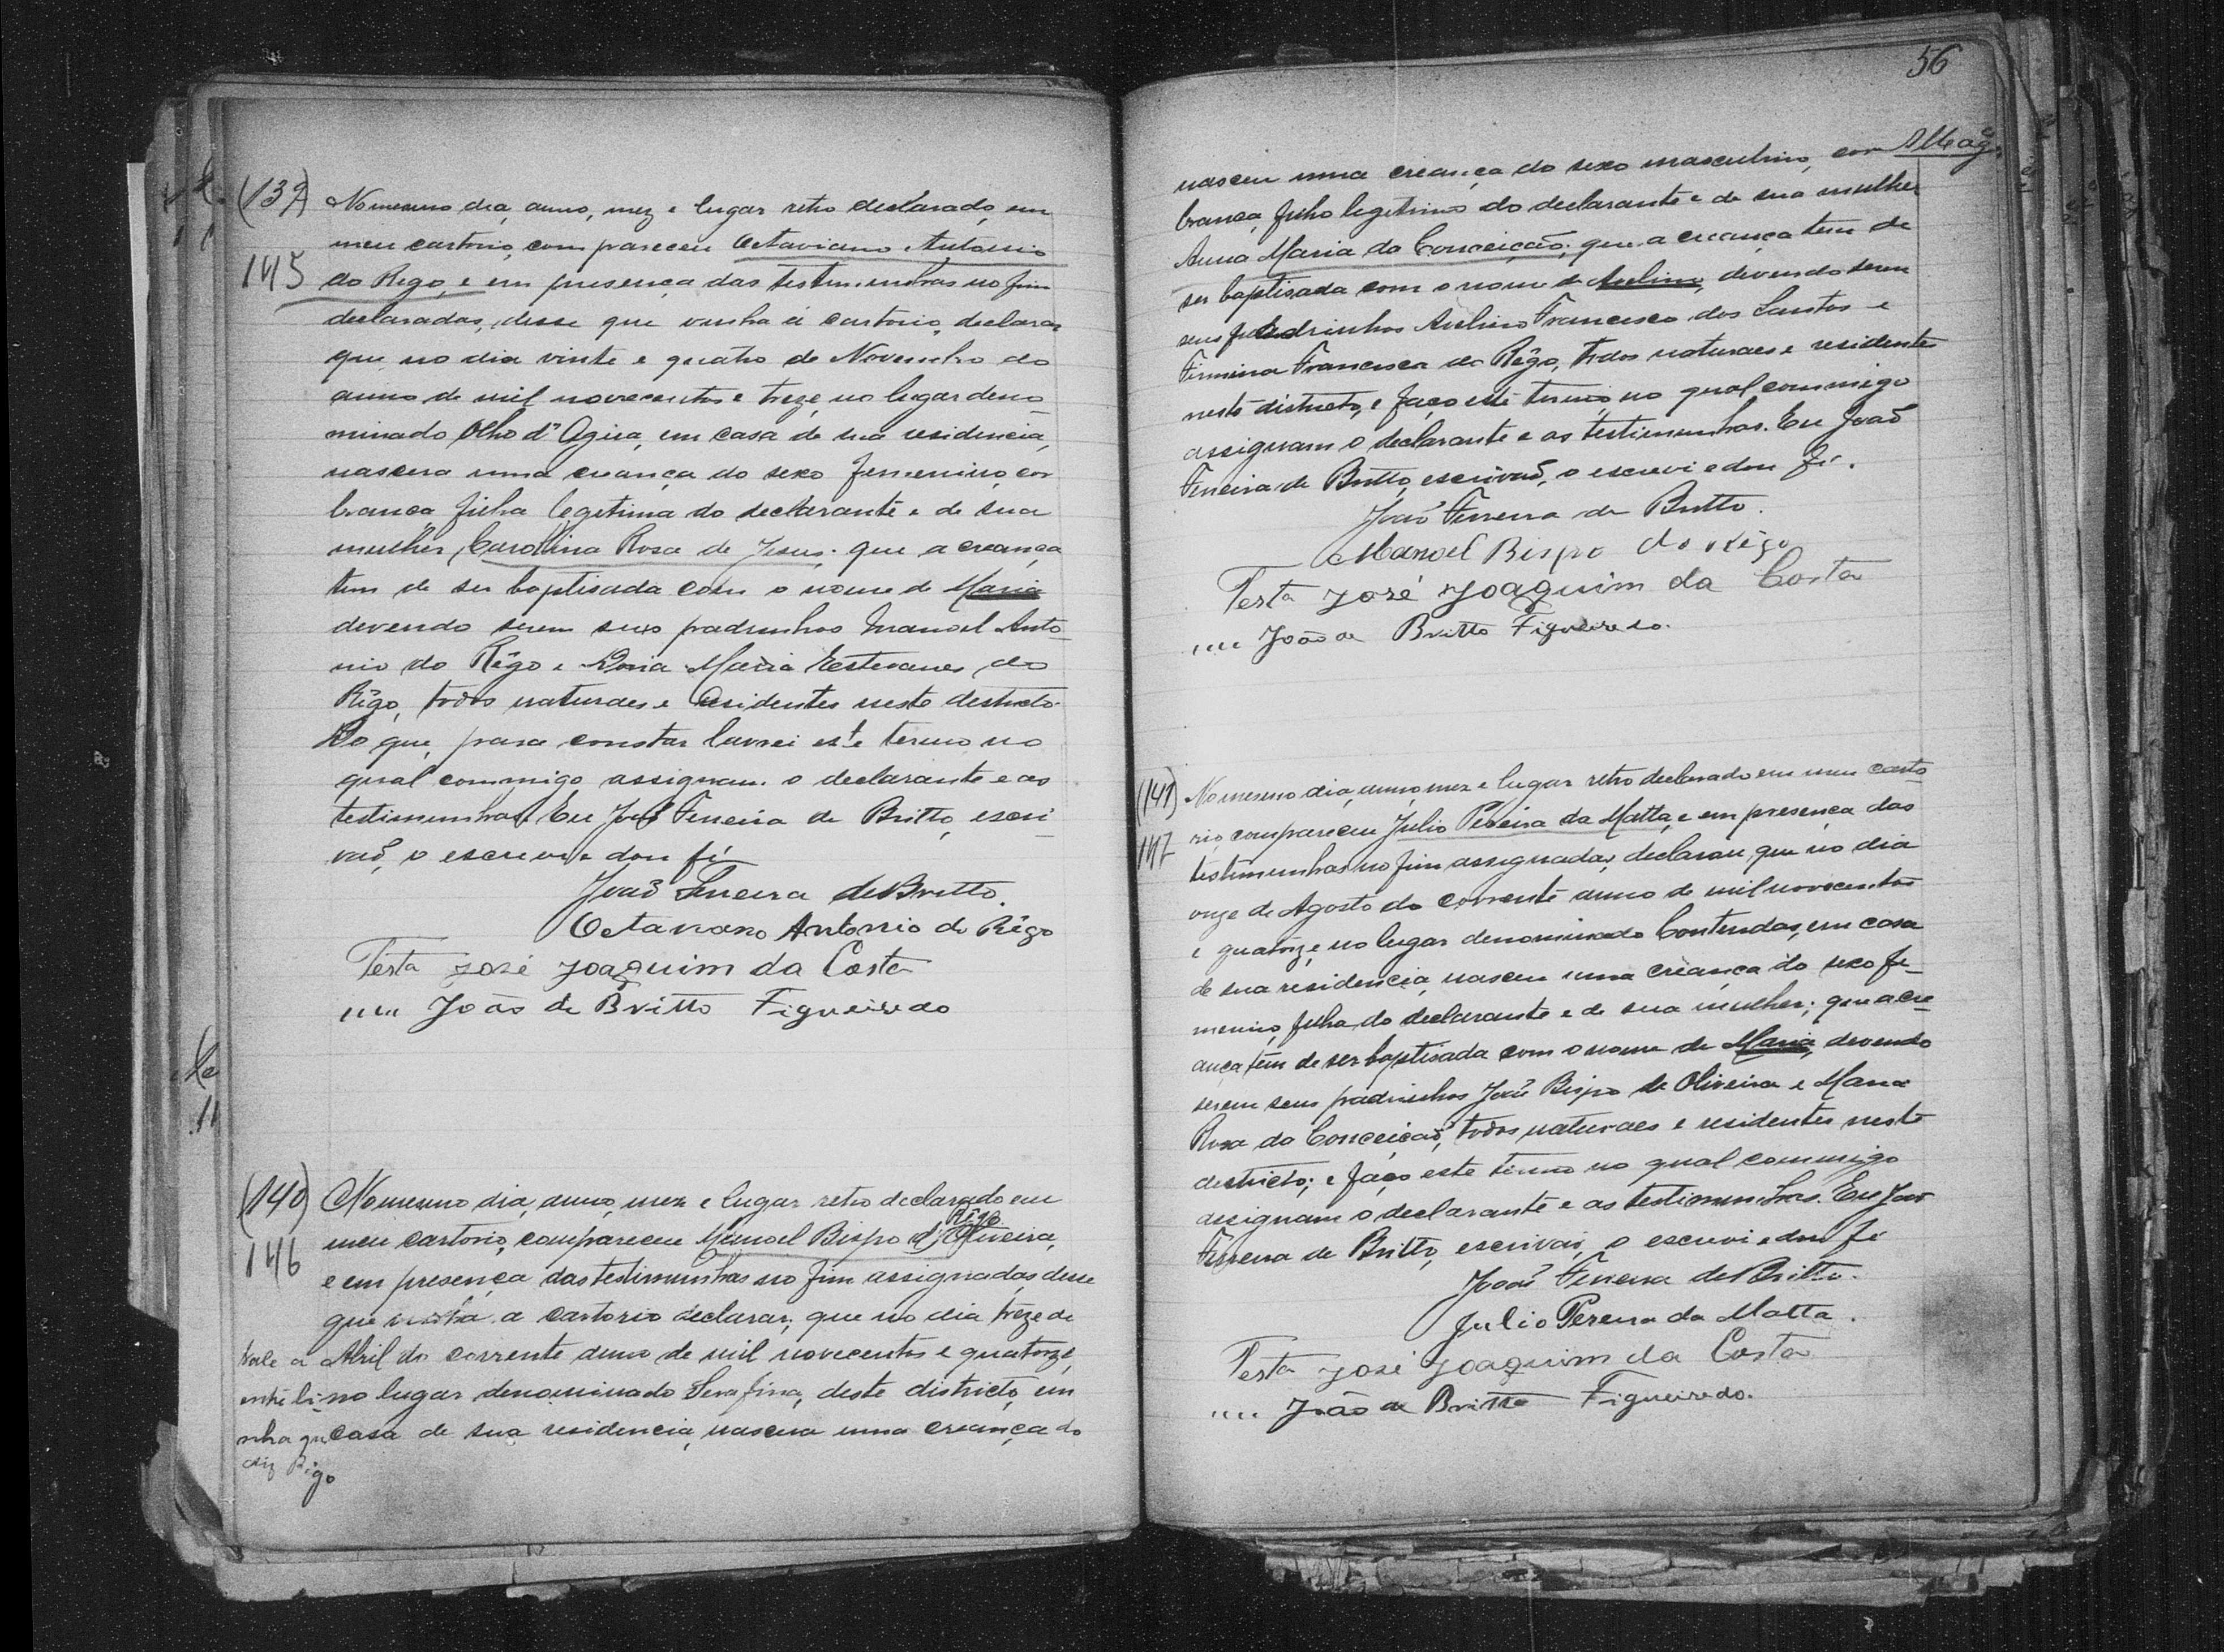 (139) No mesmo dia, anno, mez e lugar retro declarado, em
meu cartorio, compareceu Octaviano Antonio
145 do Rego, e em presença das testimunhas no fim
declaradas, disse que vinha á cartorio, declarar
que, no dia vinte e quatro de Novembro do
anno de mil novecentos e treze, no lugar deno
minado Olho d'Agua, em casa de sua residencia,
nascera uma creança do sexo femenino, cor
branca, filha legitima do declarante e de sua
mulher, Carollina Rosa de Jesus; que a creança
tem de ser baptisada com o nome de Maria
devendo serem seus padrinhos Manoel Anto
nio do Rêgo e Maria Estevanes do
Rêgo, todos naturaes e residentes neste destricto.
Do que, para constar lavrei este termo no
qual commigo assignam o declarante e as
testimunhas. Eu João Ferreira de Britto, escri-
vaõ, o escrevi e dou fé
Joaõ Ferreira de Britto.
Octaviano Antonio do Rêgo
Testa José Joaquim da Costa
"" João de Britto Figueiredo
(140) No mesmo dia, anno, mez e lugar retro declarado em
Rêgo
meu cartorio, compareceu Manoel Bispo d'Oliveira,
146 e em presença das testimunhas no fim assignadas, disse
que vinha a cartorio declarar, que no dia treze de
Vale a Abril do corrente anno de mil novecentos e quatorze,
entreli- no lugar denominado Serafina, deste districto, em
nha que casa de sua residencia, nascera uma creança do
diz Rigo
56
nasceu uma creança do sexo masculino, cor
branca, filho legitimo do declarante e de sua mulher
Anna Maria da Conceição; que a creança tem de
ser baptisada com o nome de Avelino, devendo serem
seus padrinhos Avelino Francisco dos Santos e
Firmina Francisca do Rêgo, todos naturaes e residentes
neste districto, e faço este termo, no qual commigo
assignam o declarante e as testimunhas. Eu Joaõ
Ferreira de Britto, escrivaõ, o escrevi e dou fé.
Joaõ Ferreira de Britto.
Manoel Bispo do Rêgo
Testa José Joaquim da Costa
"" João de Britto Figueiredo.
(141) No mesmo dia, anno, mez e lugar retro declarado em meu carto
rio, compareceu Julio Pereira da Matta, e em presença das
147 testimunhas no fim assignadas, declarou, que no dia
onze de Agosto do corrente anno de mil novecentos
e quatorze, no lugar denominado Contendas, em casa
de sua residencia, nasceu uma creança do sexo fe-
menino, filha do declarante e de sua mulher; que a cre-
ança tem de ser baptisada com o nome de Maria, devendo
serem seus padrinhos João Bispo de Oliveira e Maria
Rosa da Conceiçaõ, todos naturaes e residentes neste
destricto; e faço este termo no qual commigo
assignam o declarante e as testimunhas. Eu Joaõ
Ferreira de Britto, escrivaõ, o escrevi e dou fé
Joaõ Ferreira de Britto.
Julio Pereira da Matta.
Testa José Joaquim da Costa
"" João de Britto Figueiredo.